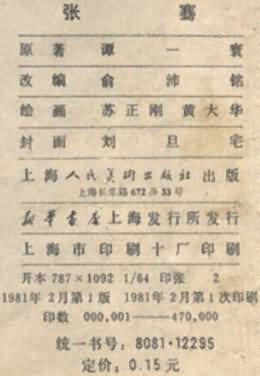 张 骞
原 著 谭 一 寰
改 编 俞 沛 铭
绘 画 苏正刚 黄大华
封 面 刘 旦 宅
上海人民美術出版社出版
上海长乐路672弄33号
新华書店上海发行所发行
上海市印刷十厂印刷
开本 787×1092 1/64 印张 2
1981年 2月第1版 1981年 2月第1次印刷
印数 000,001——470,000
统一书号：8081·12295
定价：0.15元